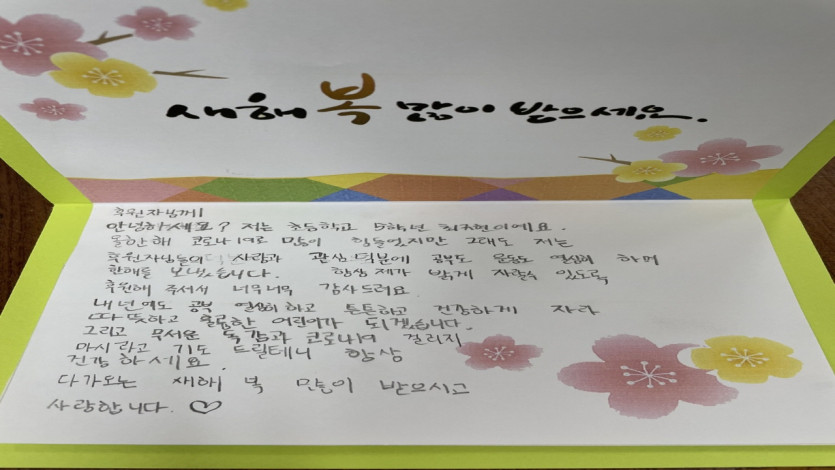 새해 복 많이 받으세요.
후원자님께
안녕하세요? 저는 초등학교 5학년 최규현이에요.
올한해 코로나19로 많이 힘들었지만 그래도 저는
후원자님들의 사랑과 관심 덕분에 공부도 운동도 열심히 하며
한해를 보냈습니다. 항상 제가 밝게 자랄수 있도록
후원해 주셔서 너무너무 감사드려요
내년에도 공부 열심히하고 튼튼하고 건강하게 자라
따뜻하고 훌륭한 어린이가 되겠습니다.
그리고 무서운 독감과 코로나19 걸리지
마시라고 기도 드릴테니 항상
건강하세요.
다가오는 새해 복 많이 받으시고
사랑합니다. ♡